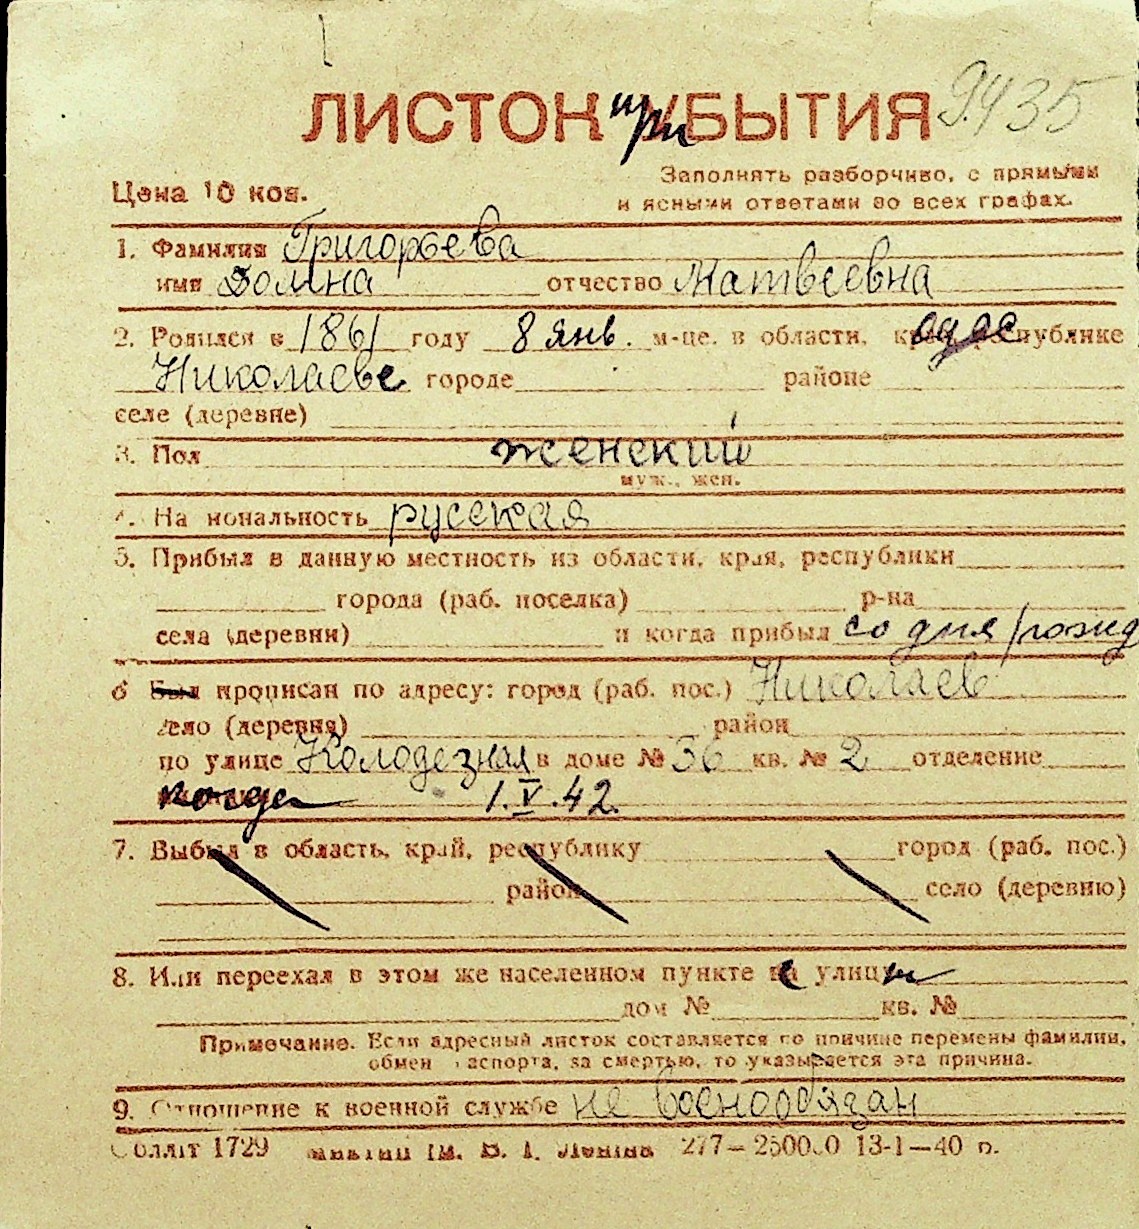 ЛИСТОК при БЫТИЯ 9435
Цена 10 коп.
Заполнять разборчиво, с прямыми
и ясными ответами во всех графах.
1. Фамилия Григорьева
имя Домна отчество Матвеевна
2. Родился в 1861 году 8 янв. м-це. в области, крае, республике одес
Николаеве городе районе
селе (деревне)
3. Пол женский
муж., жен.
4. Национальность русская
5. Прибыл в данную местность из области, края, республики
города (раб. поселка) р-на
села (деревни) и когда прибыл со дня рожд
6 Был прописан по адресу: город (раб. пос.) Николаев
село (деревня) район
по улице Колодезная в доме № 36 кв. № 2 отделение
когда 1.V.42.
7. Выбыл в область, край, республику город (раб. пос.)
район село (деревню)
8. Или переехал в этом же населенном пункте на улицу
дом № кв. №
Примечание. Если адресный листок составляется по причине перемены фамилии,
обмен паспорта, за смертью, то указывается эта причина.
9. Отношение к военной службе не военнообязан
Обллiт 1729 iм. В. I. Ленiна 277—250000 13-1—40 р.